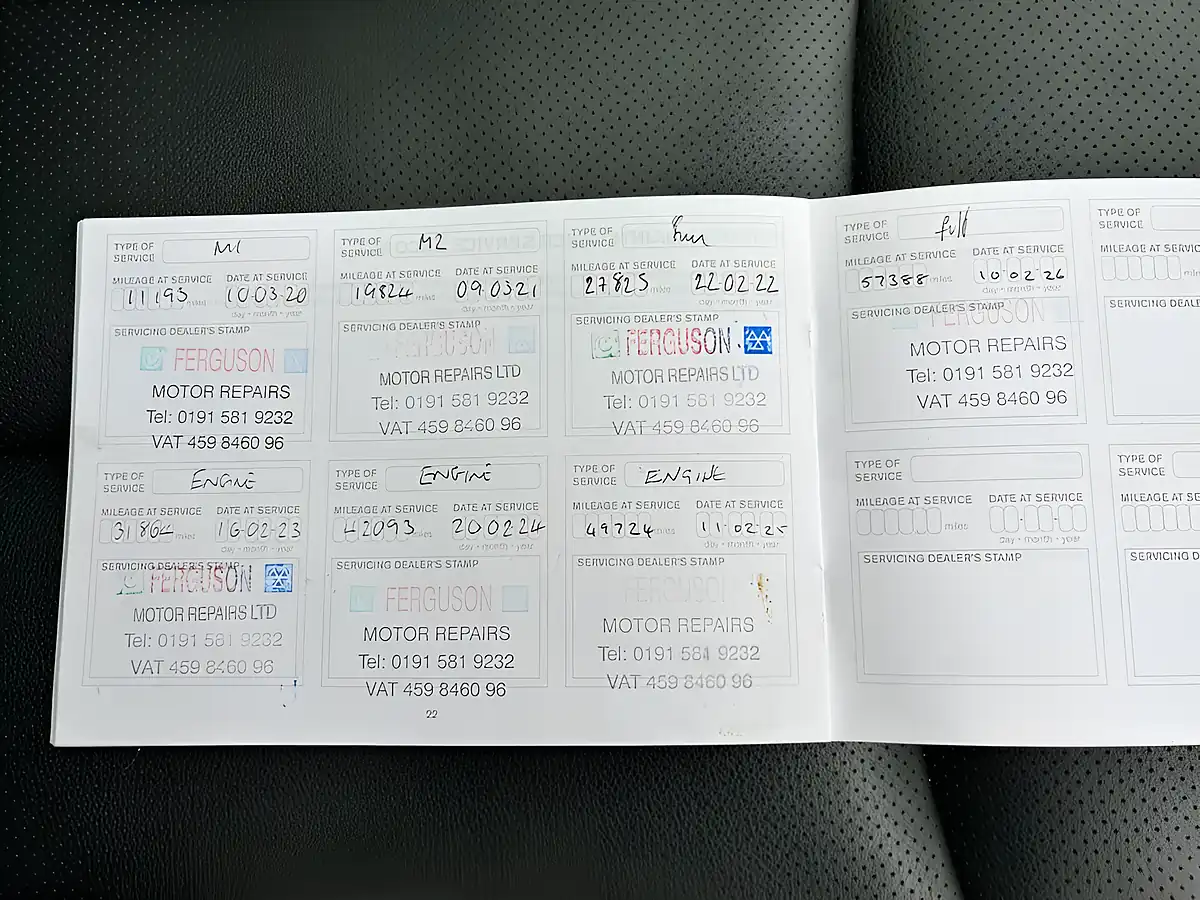 TYPE OF SERVICE M1
MILEAGE AT SERVICE DATE AT SERVICE
11193 miles 10-03-20
day - month - year
SERVICING DEALER'S STAMP
FERGUSON
MOTOR REPAIRS
Tel: 0191 581 9232
VAT 459 8460 96
TYPE OF SERVICE M2
MILEAGE AT SERVICE DATE AT SERVICE
19824 miles 09.03.21
day - month - year
SERVICING DEALER'S STAMP
FERGUSON
MOTOR REPAIRS LTD
Tel: 0191 581 9232
VAT 459 8460 96
TYPE OF SERVICE
MILEAGE AT SERVICE DATE AT SERVICE
27825 miles 22-02-22
day - month - year
SERVICING DEALER'S STAMP
FERGUSON
MOTOR REPAIRS LTD
Tel: 0191 581 9232
VAT 459 8460 96
TYPE OF SERVICE ENGINE
MILEAGE AT SERVICE DATE AT SERVICE
31864 miles 16-02-23
day - month - year
SERVICING DEALER'S STAMP
FERGUSON
MOTOR REPAIRS LTD
Tel: 0191 581 9232
VAT 459 8460 96
TYPE OF SERVICE ENGINE
MILEAGE AT SERVICE DATE AT SERVICE
42093 miles 20-02-24
day - month - year
SERVICING DEALER'S STAMP
FERGUSON
MOTOR REPAIRS
Tel: 0191 581 9232
VAT 459 8460 96
TYPE OF SERVICE ENGINE
MILEAGE AT SERVICE DATE AT SERVICE
49724 miles 11-02-25
day - month - year
SERVICING DEALER'S STAMP
FERGUSON
MOTOR REPAIRS
Tel: 0191 581 9232
VAT 459 8460 96
22
TYPE OF SERVICE full
MILEAGE AT SERVICE DATE AT SERVICE
57388 miles 10-02-26
day - month - year
SERVICING DEALER'S STAMP
FERGUSON
MOTOR REPAIRS
Tel: 0191 581 9232
VAT 459 8460 96
TYPE OF SERVICE
MILEAGE AT SERVICE
SERVICING DEALER
TYPE OF SERVICE
MILEAGE AT SERVICE DATE AT SERVICE
miles
day - month - year
SERVICING DEALER'S STAMP
TYPE OF SERVICE
MILEAGE AT SER
SERVICING D